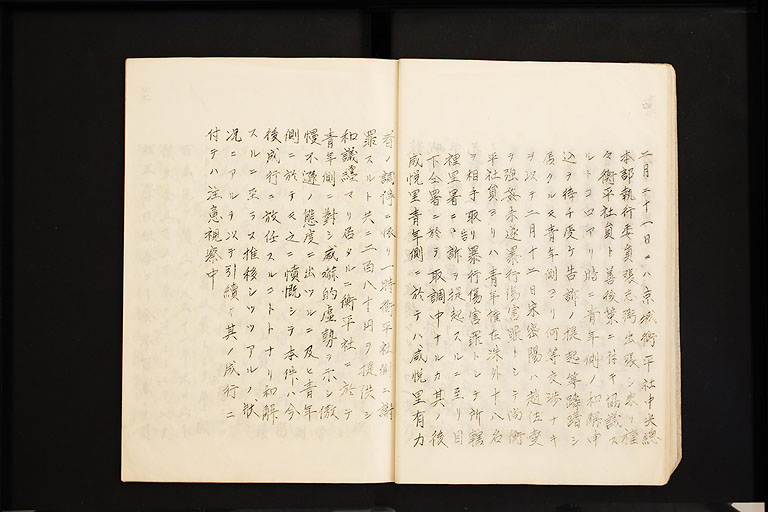 二月二十一日ニハ京城衡平社中央總
本部執行委員張志弼出張シ來リ種
々衡平社員ト善後策ニ付キ協議ス
ルトコロアリ暗ニ青年側ノ和解申
込ヲ待チ受ケ告訴ノ提起等躊躇シ
居タルモ青年側ヨリ何等交渉ナキ
ヲ以テ二月二十二日宋密陽ハ趙性
ヲ強姦未遂暴行傷害罪トシテ尚衡
平社員ヨリハ青年崔在洙外十八名
ヲ相手取リ暴行傷害罪トシテ所轄
裡里署ニ告訴ヲ提起スルニ至リ目
下仝署ニ於テ取調中ナルカ其ノ後
咸悦里青年側ニ於テハ咸悦里有力
者ノ調停ニ依リ一時衡平社側ニ謝
罪スルト共ニ二百八十円ヲ提供シ
和議纏マリ居タルニ衡平社ニ於テ
青年側ニ對シ威嚇的虚勢ヲ示シ傲
慢不遜ノ態度ニ出ツルニ及ヒ青年
側ニ於テモ之ニ憤慨シテ本件ハ今
後成行ニ放任スルコトトナリ和解
スルニ至ラス推移シツツアルノ状
況ニアルヲ以テ引續キ其ノ成行ニ
付テハ注意視察中